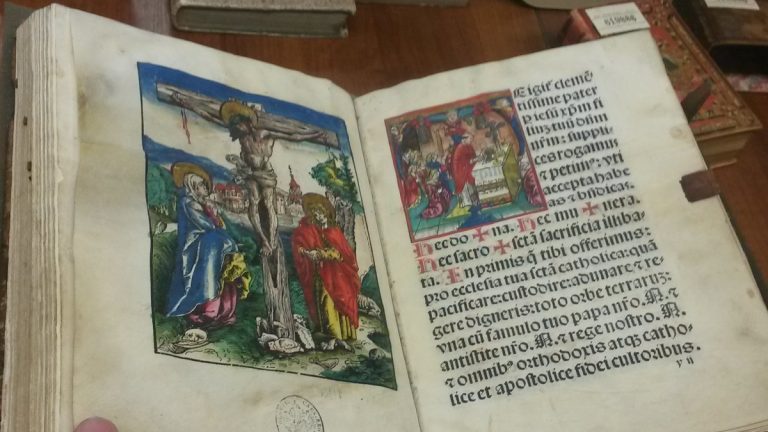 E igit̃ clemẽ
tissime pater
p iesũ xp̃m fi
liuʒ tuũ dñm
nr̃m: suppli
ces rogamus
⁊ petim⁹: vti
accepta habe
as ⁊ bñdicas.
Hec do + na. Hec mu + nera.
Hec sacro + sctã sacrificia illiba
ta. In primis q̃ tibi offerimus:
pro ecclesia tua sctã catholica: quã
pacificare: custodire: adunare ⁊ re
gere digneris: toto orbe terraruʒ:
vna cũ famulo tuo papa nr̃o. N. ⁊
antistite nr̃o. N. ⁊ rege nostro. N.
⁊ omnib⁹ orthodoxis atq̃ catho
lice et apostolice fidei cultoribus.
y ii